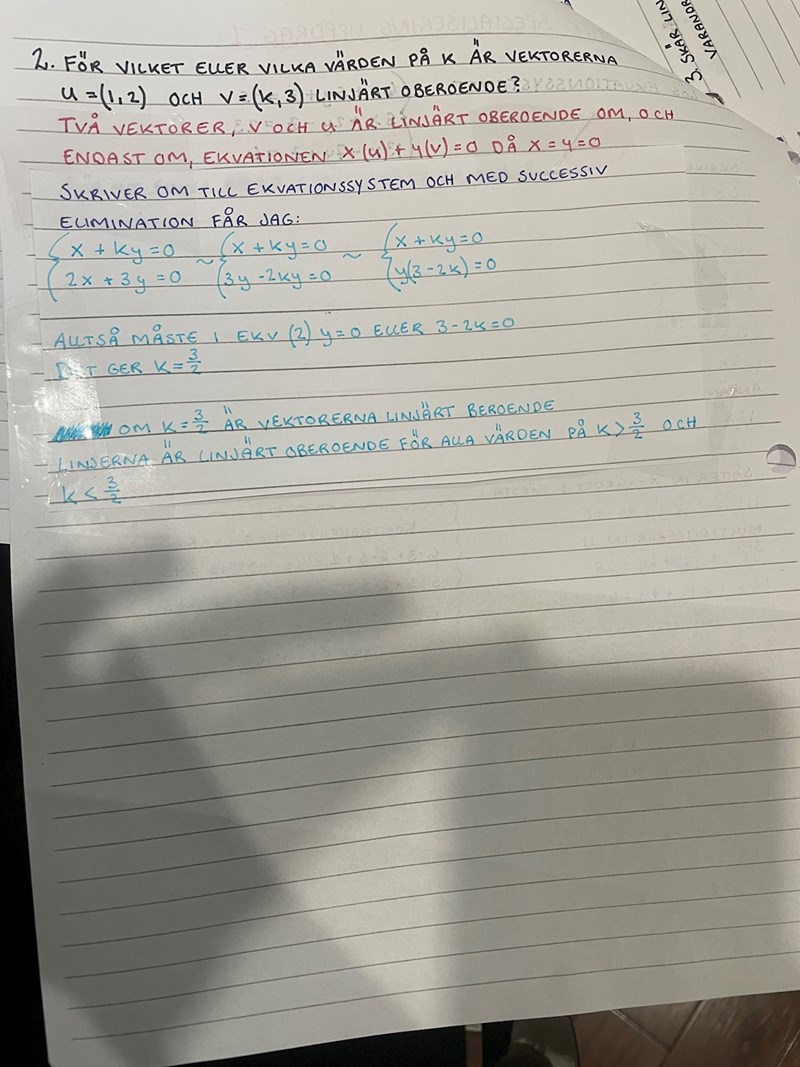 2. FÖR VILKET ELLER VILKA VÄRDEN PÅ K ÄR VEKTORERNA
U = (1,2) OCH V = (K,3) LINJÄRT OBEROENDE?
TVÅ VEKTORER, V OCH U ÄR LINJÄRT OBEROENDE OM, OCH
ENDAST OM, EKVATIONEN X(U) + Y(V) = 0 DÅ X = Y = 0
SKRIVER OM TILL EKVATIONSSYSTEM OCH MED SUCCESSIV
ELIMINATION FÅR JAG:
{ X + KY = 0 ~ { X + KY = 0 ~ { X + KY = 0
{ 2X + 3Y = 0 { 3Y - 2KY = 0 { Y(3 - 2K) = 0
ALLTSÅ MÅSTE I EKV (2) Y = 0 ELLER 3 - 2K = 0
DET GER K = 3/2
OM K = 3/2 ÄR VEKTORERNA LINJÄRT BEROENDE
LINJERNA ÄR LINJÄRT OBEROENDE FÖR ALLA VÄRDEN PÅ K > 3/2 OCH
K < 3/2
3. SKÄR LIN
VARANDR